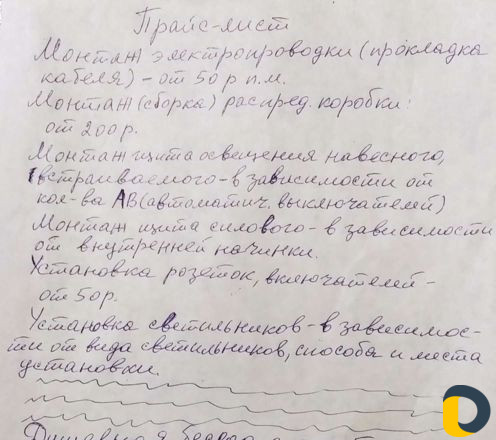 Прайс-лист
Монтаж электропроводки (прокладка
кабеля) – от 50 р п.м.
Монтаж (сборка) распред. коробки:
от 200 р.
Монтаж щита освещения навесного,
встраиваемого - в зависимости от
кол-ва АВ (автоматич. выключателей)
Монтаж щита силового - в зависимости
от внутренней начинки.
Установка розеток, включателей -
от 50 р.
Установка светильников - в зависимос-
ти от вида светильников, способа и места
установки.